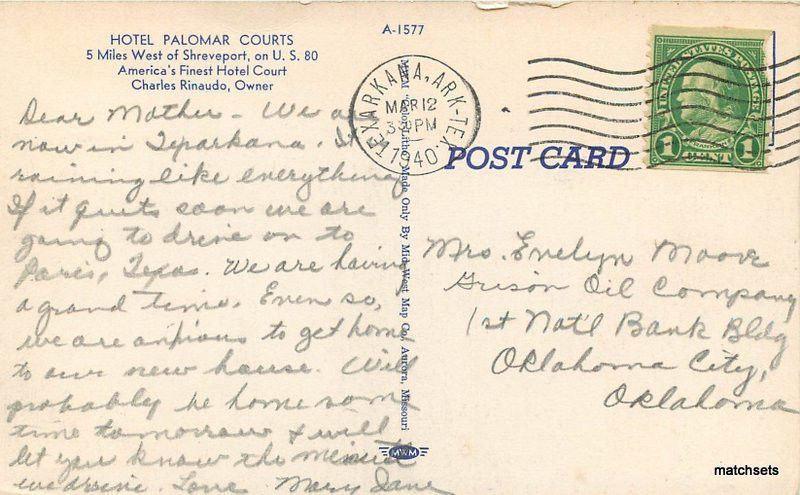 A-1577
HOTEL PALOMAR COURTS
5 Miles West of Shreveport, on U. S. 80
America's Finest Hotel Court
Charles Rinaudo, Owner
Dear Mother - We are
now in Texarkana. It
raining like everything
If it quits soon we are
going to drive on to
Paris, Texas. We are having
a grand time. Even so,
we are anxious to get home
to our new house. Will
probably be home some
time tomorrow & will
let you know the minute
we drive. Love Mary Jane
TEXARKANA, ARK-TEX
MAR 12
3 PM
1940
MWM Made Only By Mid-West Map Co., Aurora, Missouri
MWM
POST CARD
UNITED STATES POSTAGE
FRANKLIN
1 CENT 1
Mrs. Evelyn Moore
Grison Oil Company
1st Nat'l Bank Bldg
Oklahoma City,
Oklahoma
matchsets